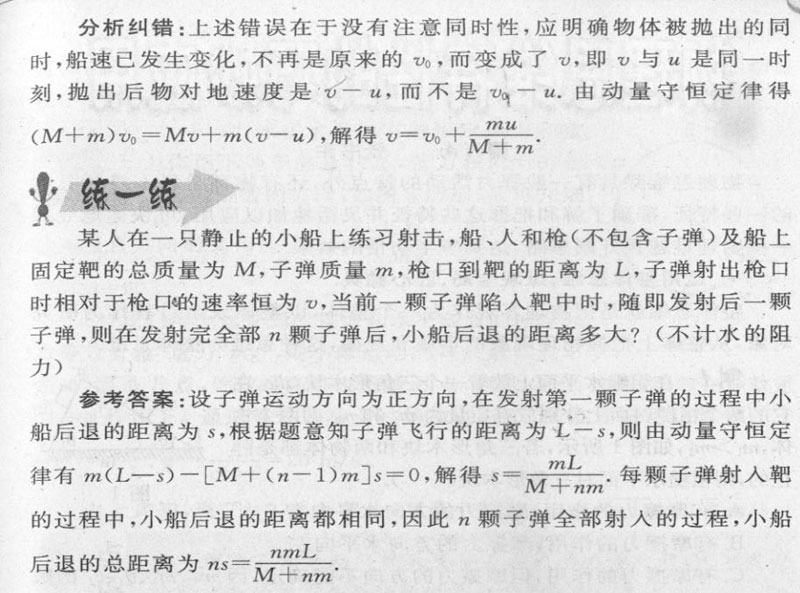 分析纠错:上述错误在于没有注意同时性,应明确物体被抛出的同
时,船速已发生变化,不再是原来的 v₀,而变成了 v,即 v 与 u 是同一时
刻,抛出后物对地速度是 v－u,而不是 v₀－u. 由动量守恒定律得
(M+m)v₀=Mv+m(v-u),解得 v=v₀+mu/(M+m).
练一练
某人在一只静止的小船上练习射击,船、人和枪(不包含子弹)及船上
固定靶的总质量为 M,子弹质量 m,枪口到靶的距离为 L,子弹射出枪口
时相对于枪口的速率恒为 v,当前一颗子弹陷入靶中时,随即发射后一颗
子弹,则在发射完全部 n 颗子弹后,小船后退的距离多大?(不计水的阻
力)
参考答案:设子弹运动方向为正方向,在发射第一颗子弹的过程中小
船后退的距离为 s,根据题意知子弹飞行的距离为 L－s,则由动量守恒定
律有 m(L—s)－[M+(n－1)m]s=0,解得 s=mL/(M+nm). 每颗子弹射入靶
的过程中,小船后退的距离都相同,因此 n 颗子弹全部射入的过程,小船
后退的总距离为 ns=nmL/(M+nm).